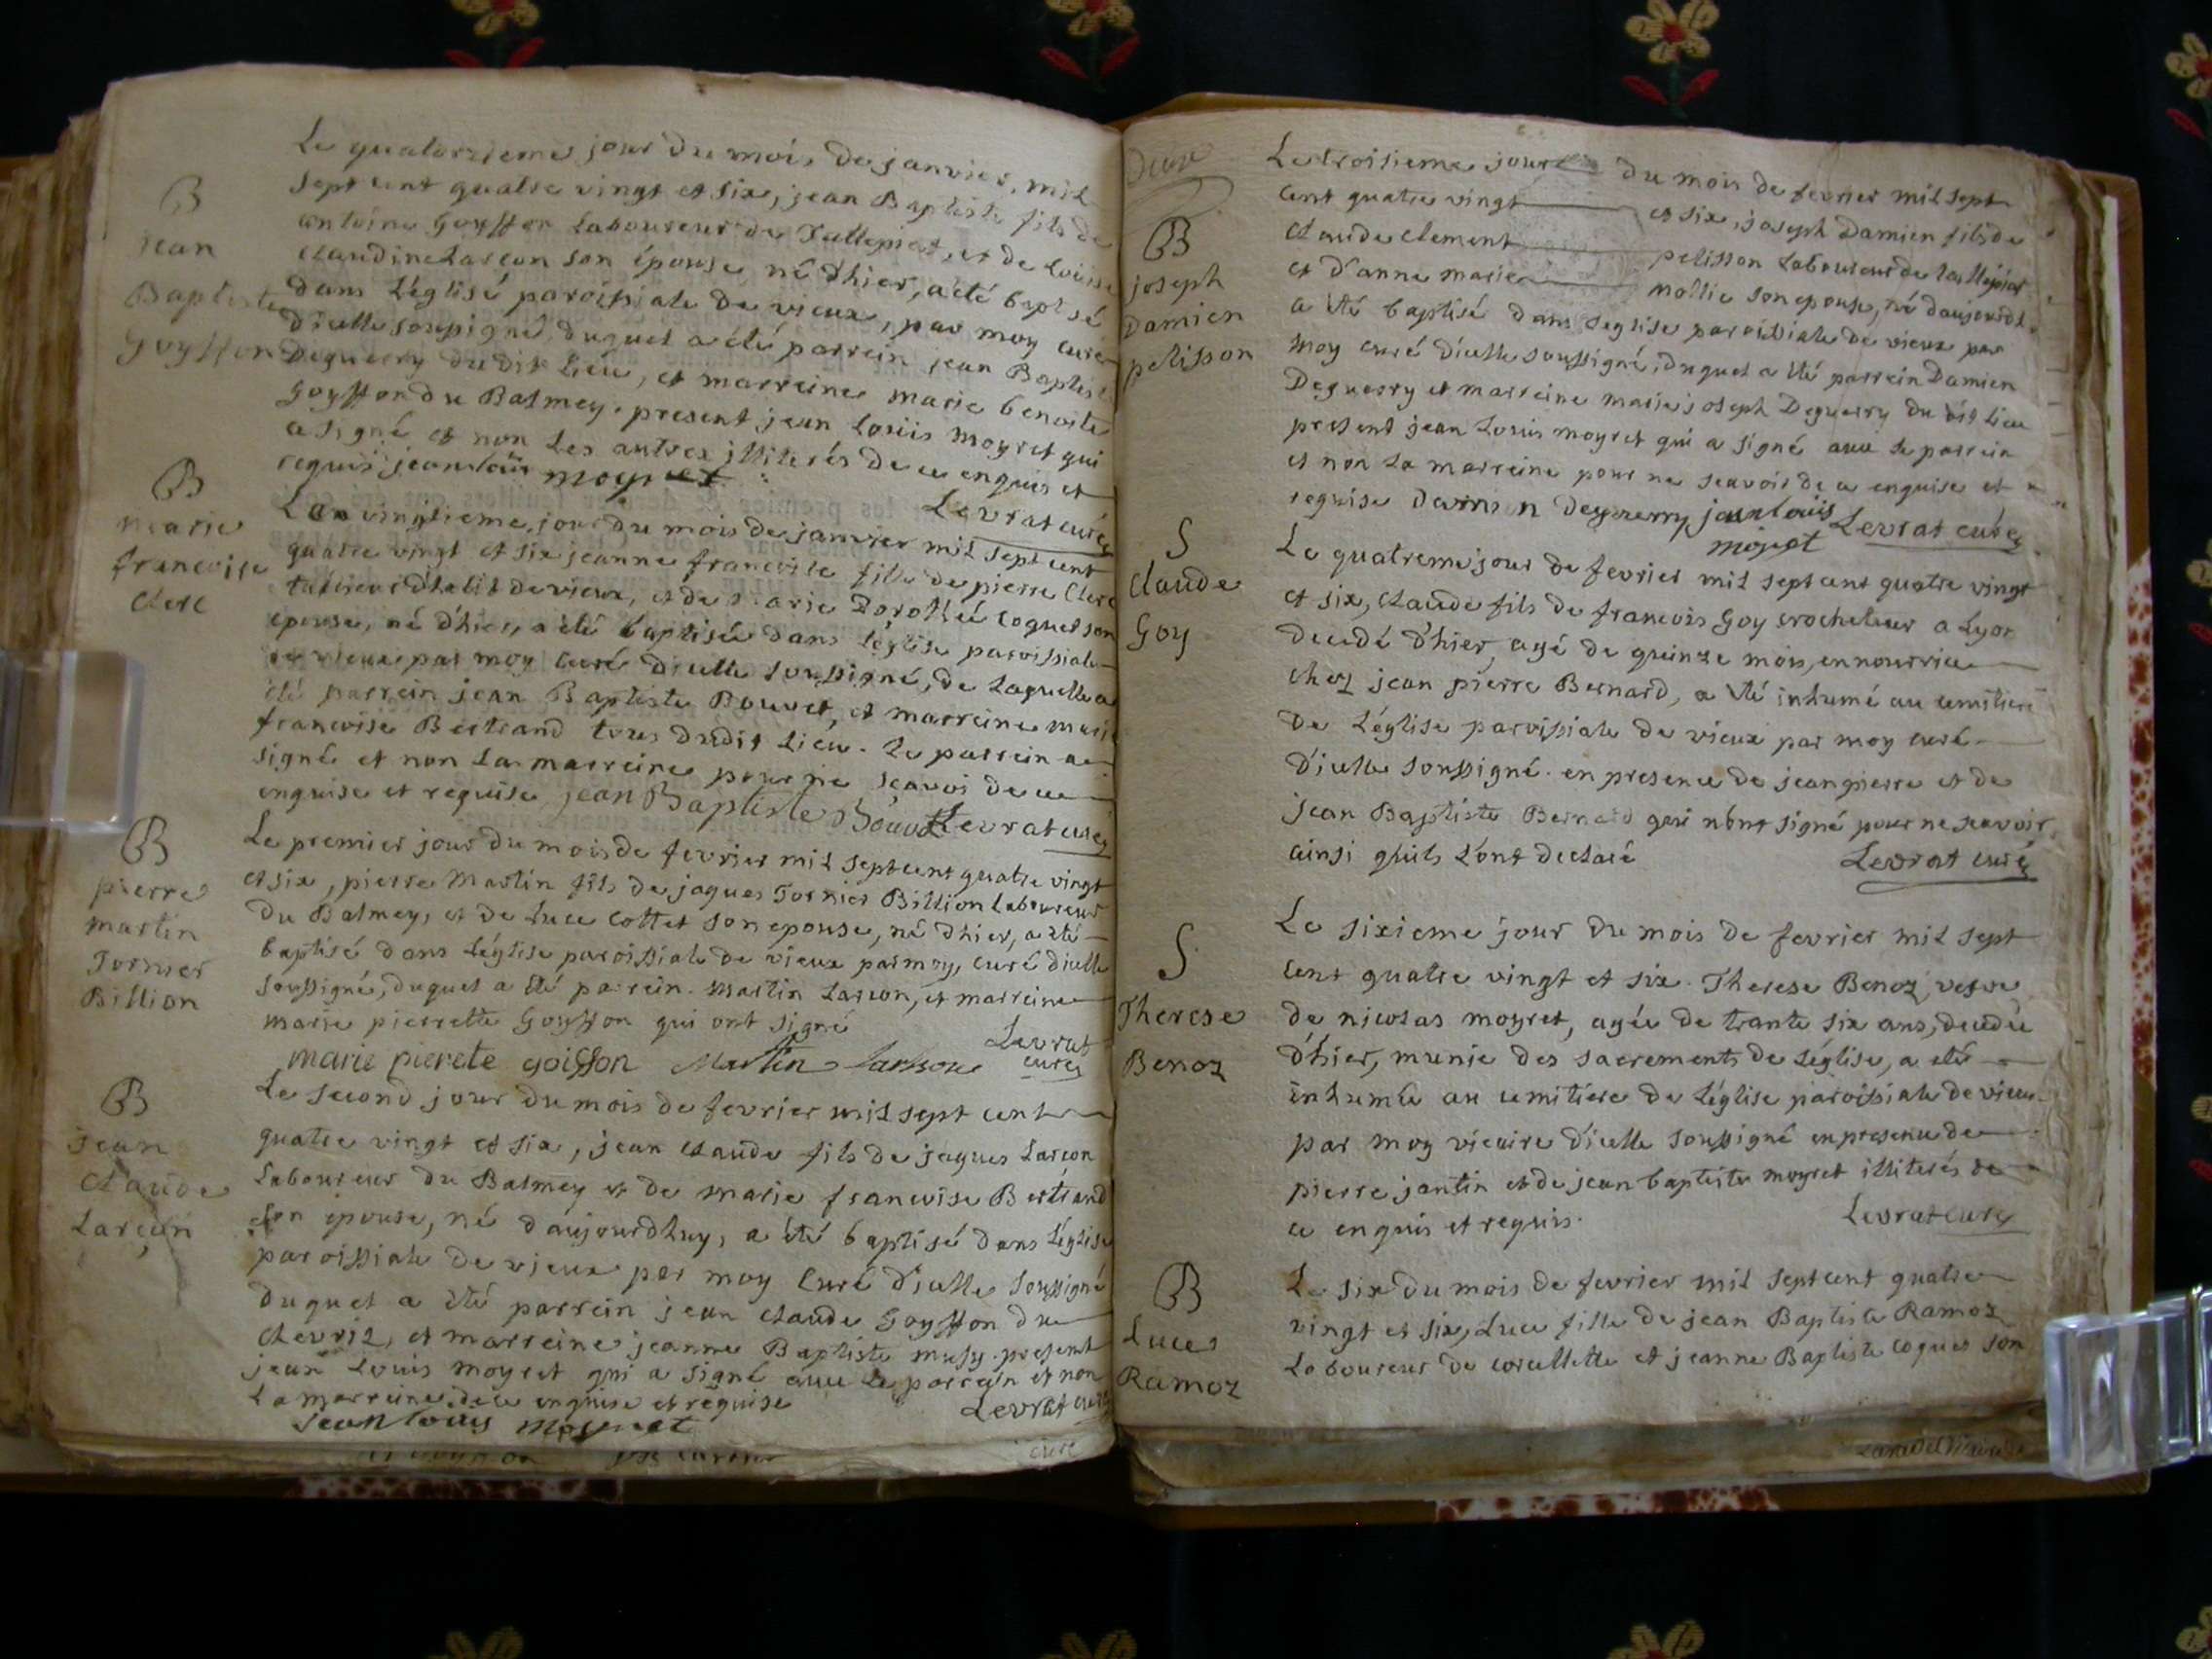 B
jean
Baptiste
Goyffon
Le quatorzieme jour du mois de janvier, mil
sept cent quatre vingt et six, jean Baptiste fils de
antoine Goyffon Laboureur de Tallepiat, et de Louise
claudine Larçon son épouse, né d'hier, a été baptisé
dans l'églisé paroissiale de vieux, par moy curé
d'icelle soussigné, duquel a été parrein jean Baptiste
Deguerry du dit Lieu, et marreine marie benoite
Goyffon du Balmey. present jean Louis moyret qui
a signé et non Les autres illiterés de ce enquis et
requis jean louis moyret
Levrat curé
B
marie
francoise
clerc
Le vingtieme jour du mois de janvier mil sept cent
quatre vingt et six jeanne francoise fille de pierre Clerc
tailleur d'habit de vieux, et de marie Dorothée coquet son
epouse, né d'hier, a été baptisée dans l'église paroissiale
de vieux par moy curé d'icelle soussigné, de Laquelle a
été parrein jean Baptiste Bouvet, et marreine marie
francoise Bertrand tous dudit Lieu. Le parrein a
signé et non La marreine pour ne scavoi de ce
enquise et requise jean Baptiste Bouvet Levrat curé
B
pierre
martin
Tornier
Billion
Le premier jour du mois de fevrier mil sept cent quatre vingt
et six, pierre Martin fils de jaques Tornier Billion Laboureur
du Balmey, et de Luce cottet son epouse, né d'hier, a été
baptisé dans L'église paroissiale de vieux par moy, curé d'icelle
soussigné, duquel a été parrein. martin Larcon, et marreine
marie pierrette Goyffon qui ont signé
Levrat
curé
marie pierete goiffon Martin Larson
B
jean
claude
Larçon
Le second jour du mois de fevrier mil sept cent
quatre vingt et six, jean claude fils de jaques Larcon
Laboureur du Balmey et de marie francoise Bertrand
son epouse, né d'aujourdhuy, a été baptisé dans L'église
paroissiale de vieux par moy Curé d'icelle soussigné
duquel a été parrein jean claude Goyffon du
chevril, et marreine jeanne Baptiste musy. present
jean Louis moyret qui a signé avec Le parrein et non
La marreine de ce enquise et requise
Levrat curé
jean louis moyret
Deux
B
joseph
Damien
pelisson
Le troisieme jour du mois de fevrier mil sept
cent quatre vingt et six, joseph Damien fils de
claude clement pelisson Laboureur de tallepiat
et d'anne marie mollie son epouse, né daujourdh.
a été baptisé dans leglise paroissiale de vieux par
moy curé d'icelle soussigné, duquel a été parrein Damien
Deguerry et marreine marie joseph Deguerry du dit Lieu
present jean Louis moyret qui a signé avec Le parrein
et non La marreine pour ne scavoir de ce enquise et
requise damien deguerry jean louis
moyret
Levrat curé
S
claude
Goy
Le quatreme jour de fevrier mil sept cent quatre vingt
et six, claude fils de francois Goy crocheteur a Lyon
decedé d'hier, agé de quinze mois, en nourrice
chez jean pierre Bernard, a été inhumé au cemitiere
de L'église paroissiale de vieux par moy curé
d'icelle soussigné. en presence de jean pierre et de
jean Baptiste Bernard qui n'ont signé pour ne scavoir
ainsi qu'ils L'ont declaré
Levrat curé
S
Therese
Benoz
Le sixieme jour du mois de fevrier mil sept
cent quatre vingt et six. Therese Benoz, vesve
de nicolas moyret, agée de trante six ans, decedée
d'hier, munie des sacrements de L'église, a été
inhumée au cemitiere de L'église paroissiale de vieux
par moy vicaire d'icelle soussigné en presence de
pierre jantin et de jean baptiste moyret illiterés de
ce enquis et requis.
Levrat curé
B
Luce
Ramoz
Le six du mois de fevrier mil sept cent quatre
vingt et six, Luce fille de jean Baptiste Ramoz
Laboureur de corcellette et jeanne Baptiste coquet son